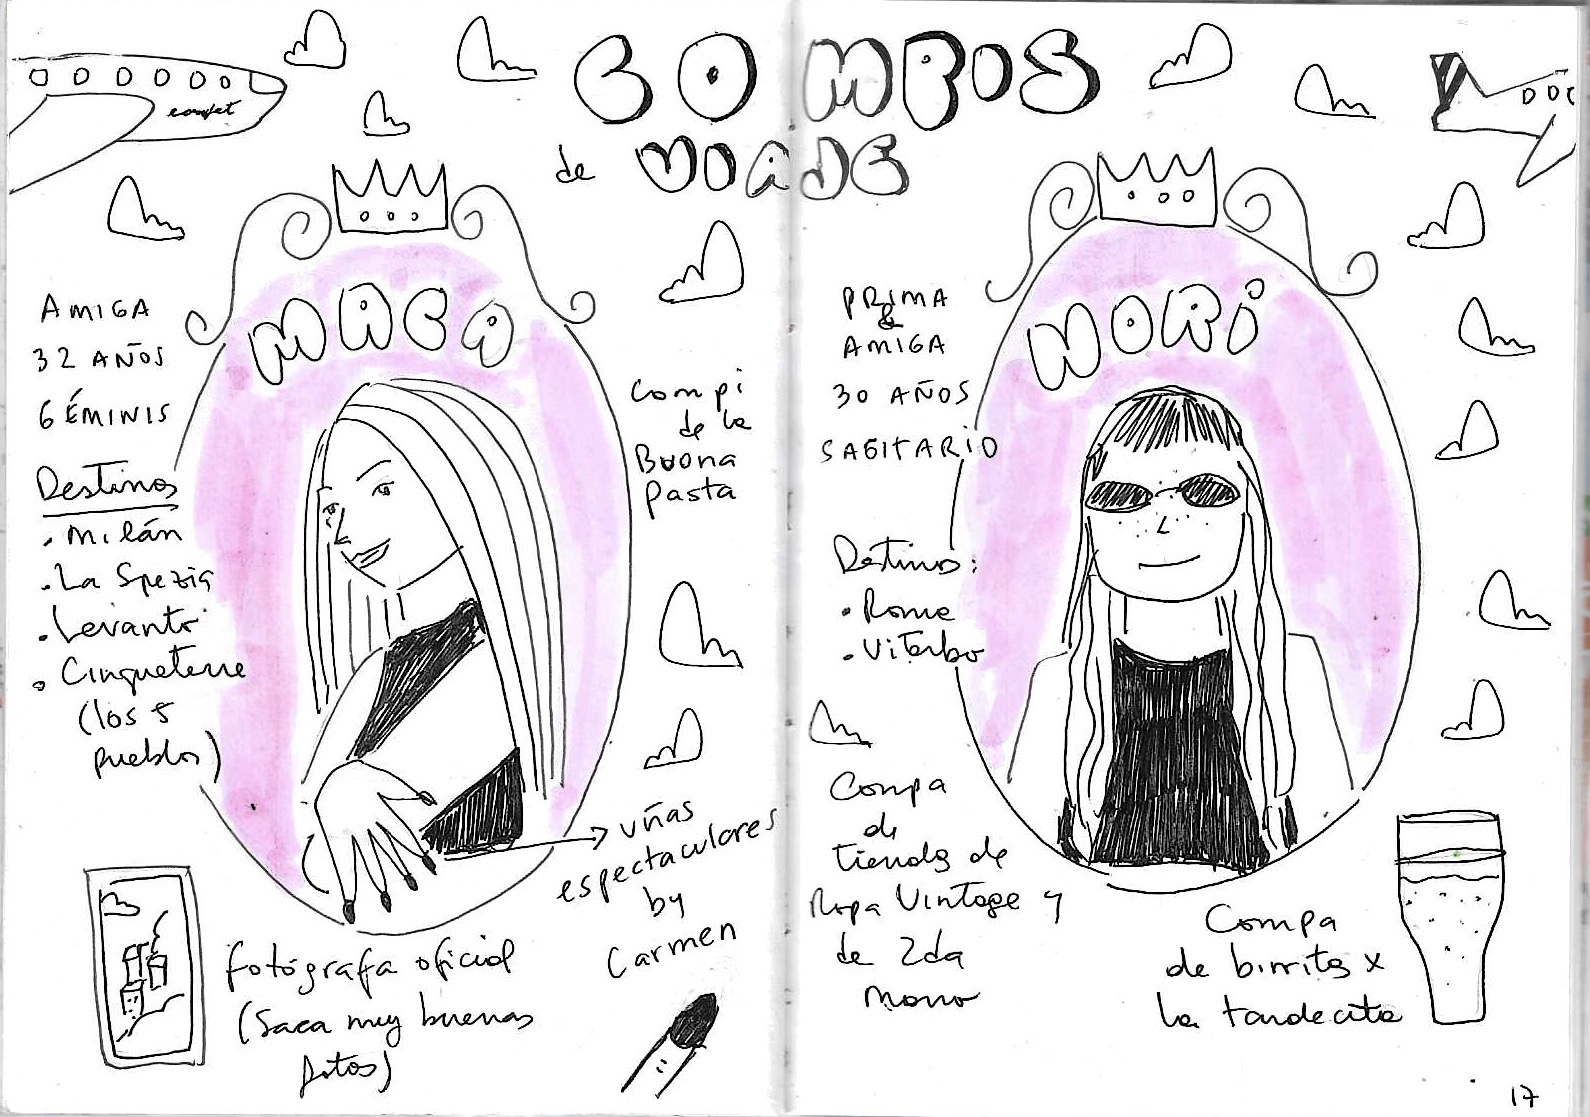 COMPIS
de VIAJE
MACA
AMIGA
32 AÑOS
GÉMINIS
Destinos
. Milán
. La Spezia
. Levanto
. Cinqueterre
(los 5
pueblos)
Compi
de la
Buona
Pasta
uñas
espectaculares
by
Carmen
fotógrafa oficial
(Saca muy buenas
fotos)
NORI
PRIMA
&
AMIGA
30 AÑOS
SAGITARIO
Destinos:
. Roma
. Viterbo
Compa
de
tiendas de
Ropa Vintage y
de 2da
mano
Compa
de birritas x
la tardecita
17